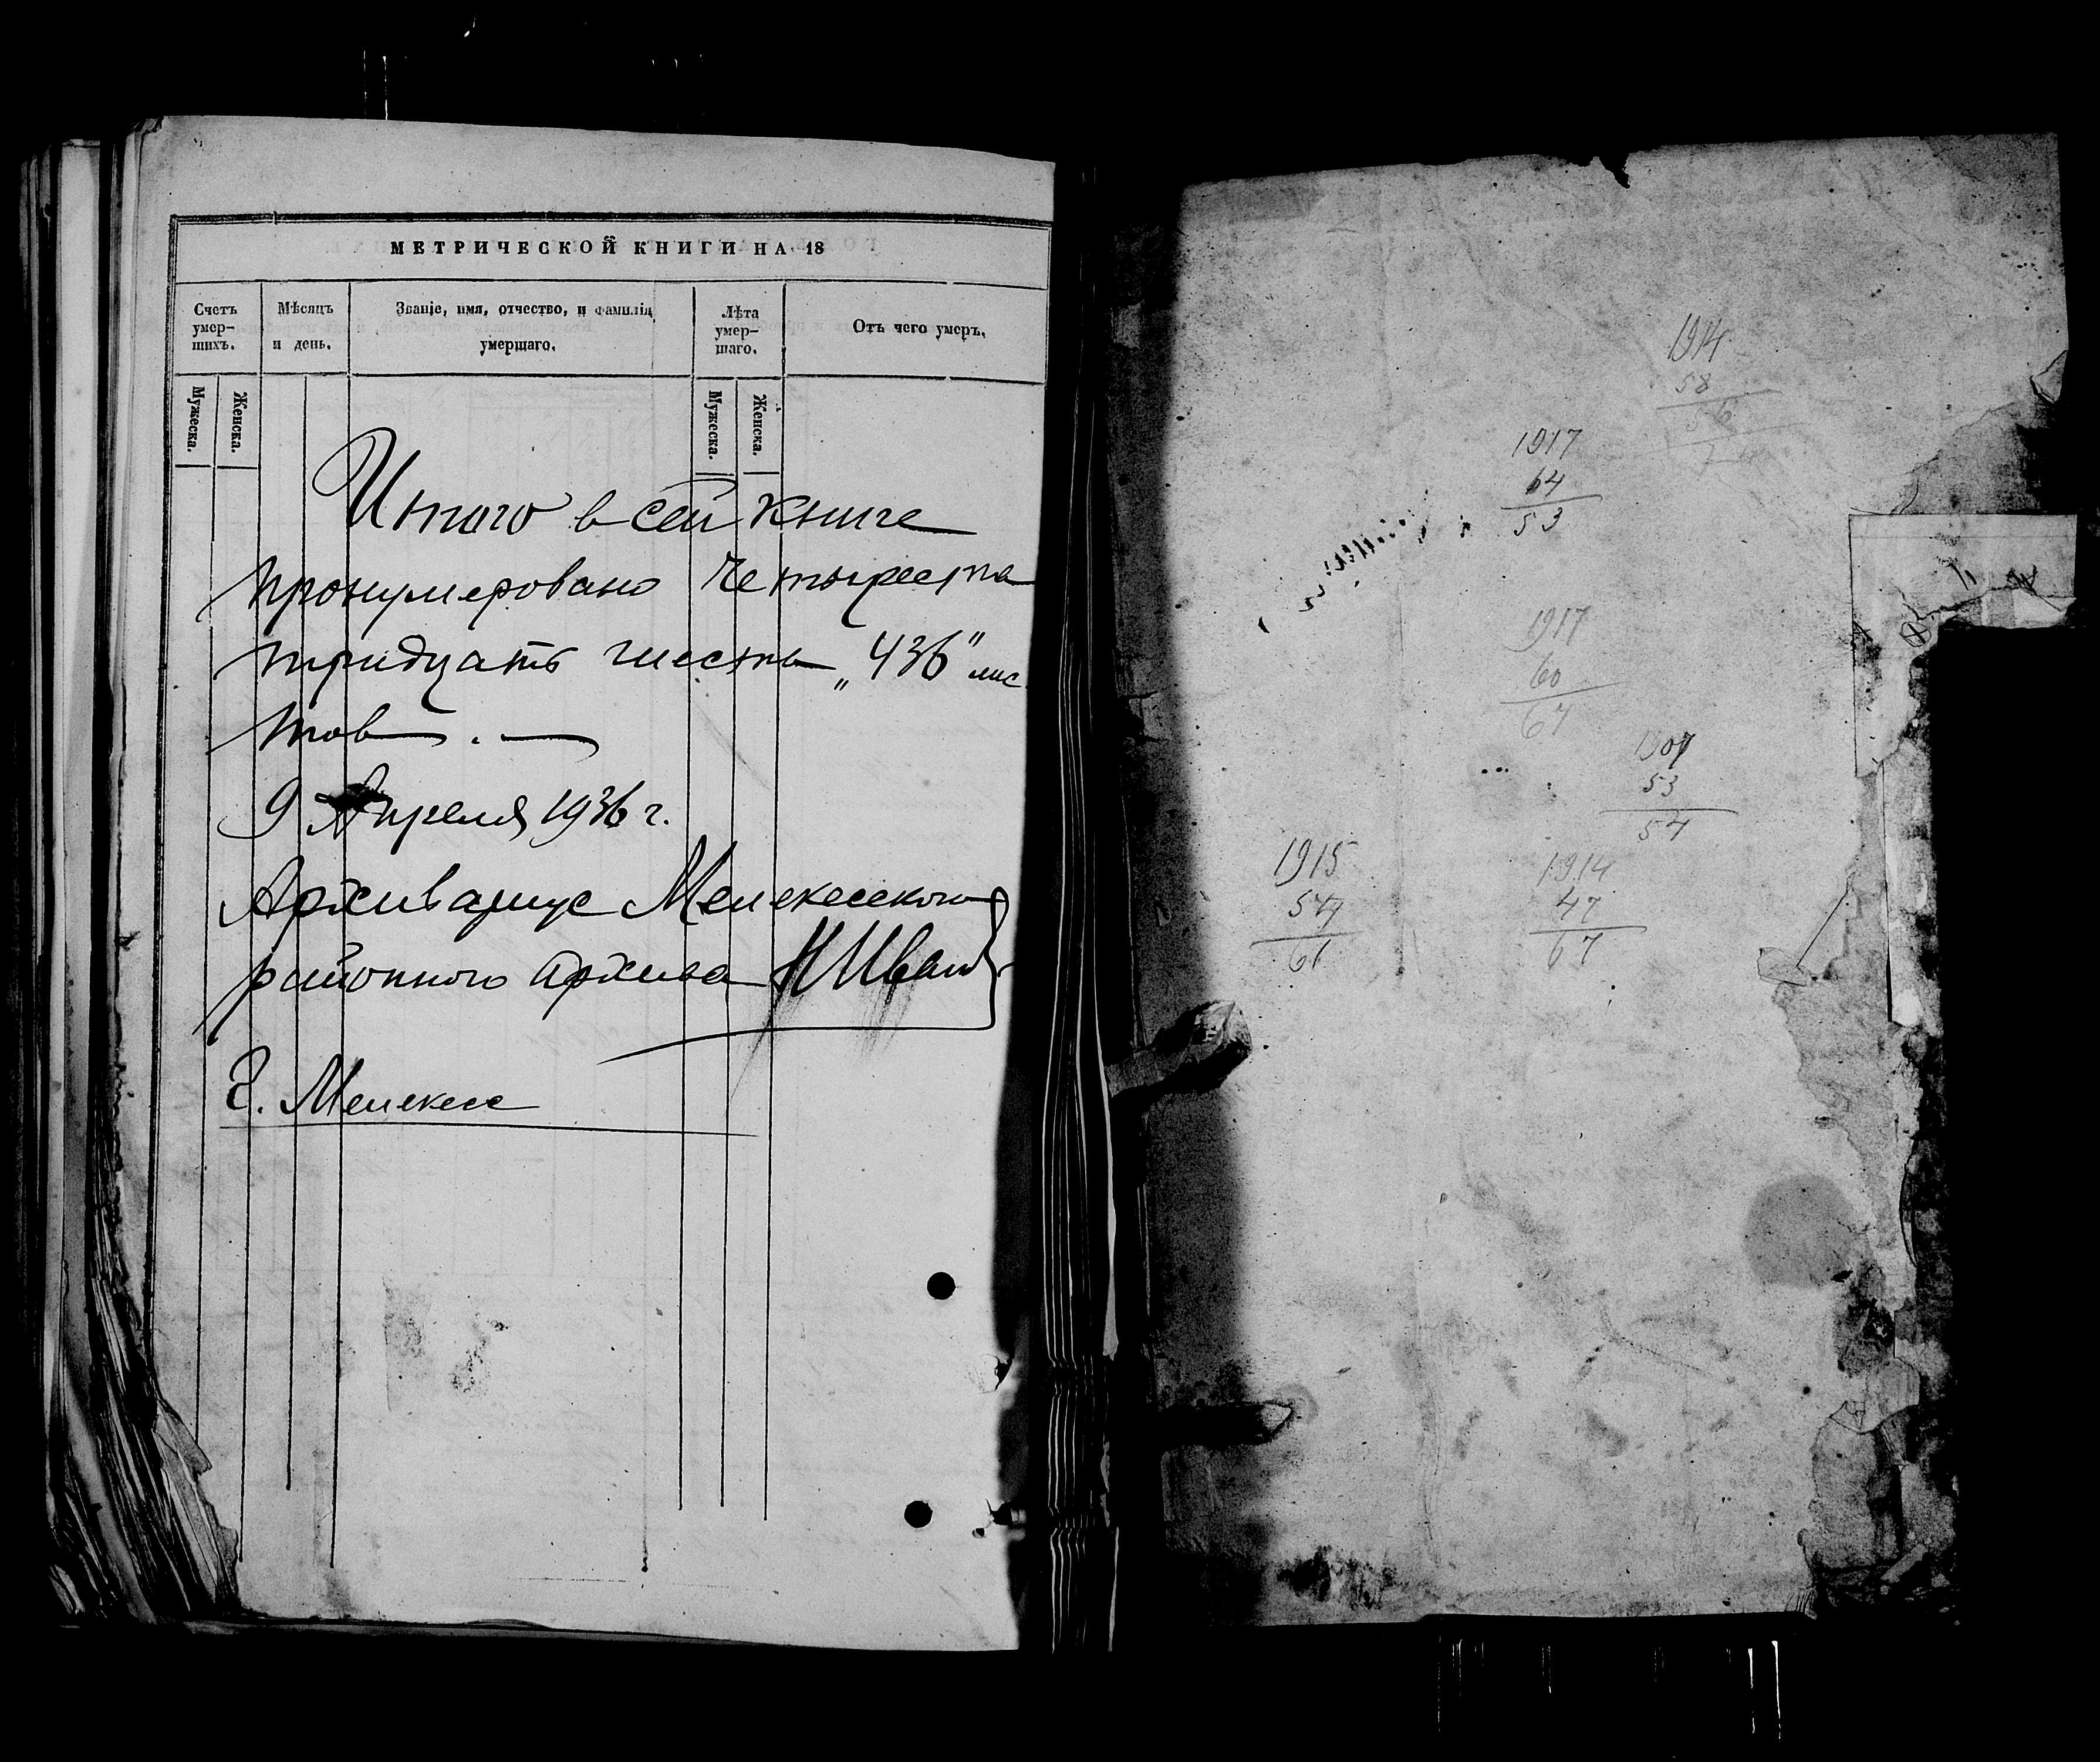 МЕТРИЧЕСКОЙ КНИГИ НА 18
Счетъ умер- шихъ.
Мѣсяцъ и день.
Званіе, имя, отчество, и фамилія умершаго.
Лѣта умер- шаго.
Отъ чего умеръ.
Мужеска.
Женска.
Мужеска.
Женска.
Итого в сей книге
пронумеровано Четыреста
тридцать шесть „436" лис
тов. —
9 Апреля 1936 г.
Архивариус Мелекесского
районного архива
г. Мелекесс
1914
58
56
1917
64
53
1917
60
67
1907
53
54
1915
54
61
1914
47
67